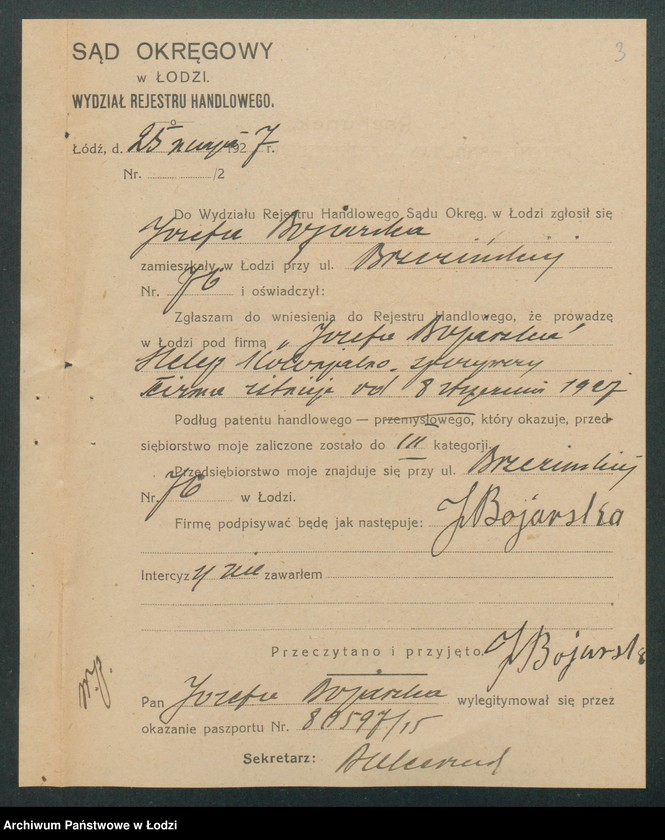 3
SĄD OKRĘGOWY
w ŁODZI.
WYDZIAŁ REJESTRU HANDLOWEGO.
Łódź, d. 25 maja 1927 r.
Nr. /2
Do Wydziału Rejestru Handlowego Sądu Okręg. w Łodzi zgłosił się
Józefa Bojarska
zamieszkały w Łodzi przy ul. Brzezińskiej
Nr. 76 i oświadczył:
Zgłaszam do wniesienia do Rejestru Handlowego, że prowadzę
w Łodzi pod firmą „Józefa Bojarska"
Sklep kolonjalno-spożywczy
Firma istnieje od 8 stycznia 1927.
Podług patentu handlowego — przemysłowego, który okazuje, przed-
siębiorstwo moje zaliczone zostało do III kategorji.
Przedsiębiorstwo moje znajduje się przy ul. Brzezinskiej
Nr. 76 w Łodzi.
Firmę podpisywać będę jak następuje: J Bojarska
Intercyzy nie zawarłem
Przeczytano i przyjęto. J Bojarska
Pan Józefa Bojarska wylegitymował się przez
okazanie paszportu Nr. 80597/15
Sekretarz:
Archiwum Państwowe w Łodzi